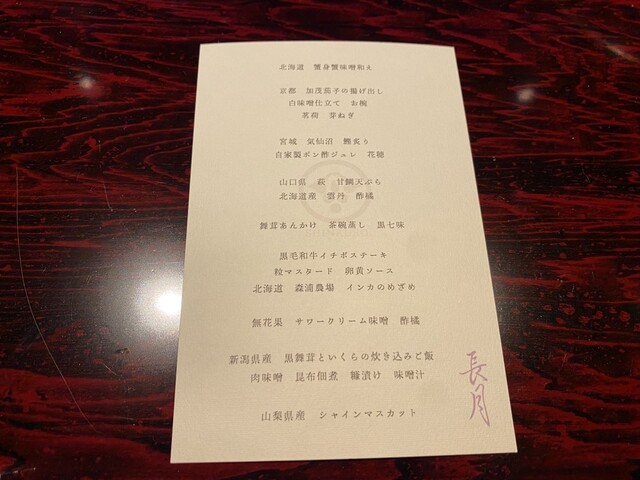 北海道　蟹身蟹味噌和え
京都　加茂茄子の揚げ出し
白味噌仕立て　お椀
茗荷　芽ねぎ
宮城　気仙沼　鰹炙り
自家製ポン酢ジュレ　花穂
山口県　萩　甘鯛天ぷら
北海道産　雲丹　酢橘
舞茸あんかけ　茶碗蒸し　黒七味
黒毛和牛イチボステーキ
粒マスタード　卵黄ソース
北海道　森浦農場　インカのめざめ
無花果　サワークリーム味噌　酢橘
新潟県産　黒舞茸といくらの炊き込みご飯
肉味噌　昆布佃煮　糠漬け　味噌汁
山梨県産　シャインマスカット
長月